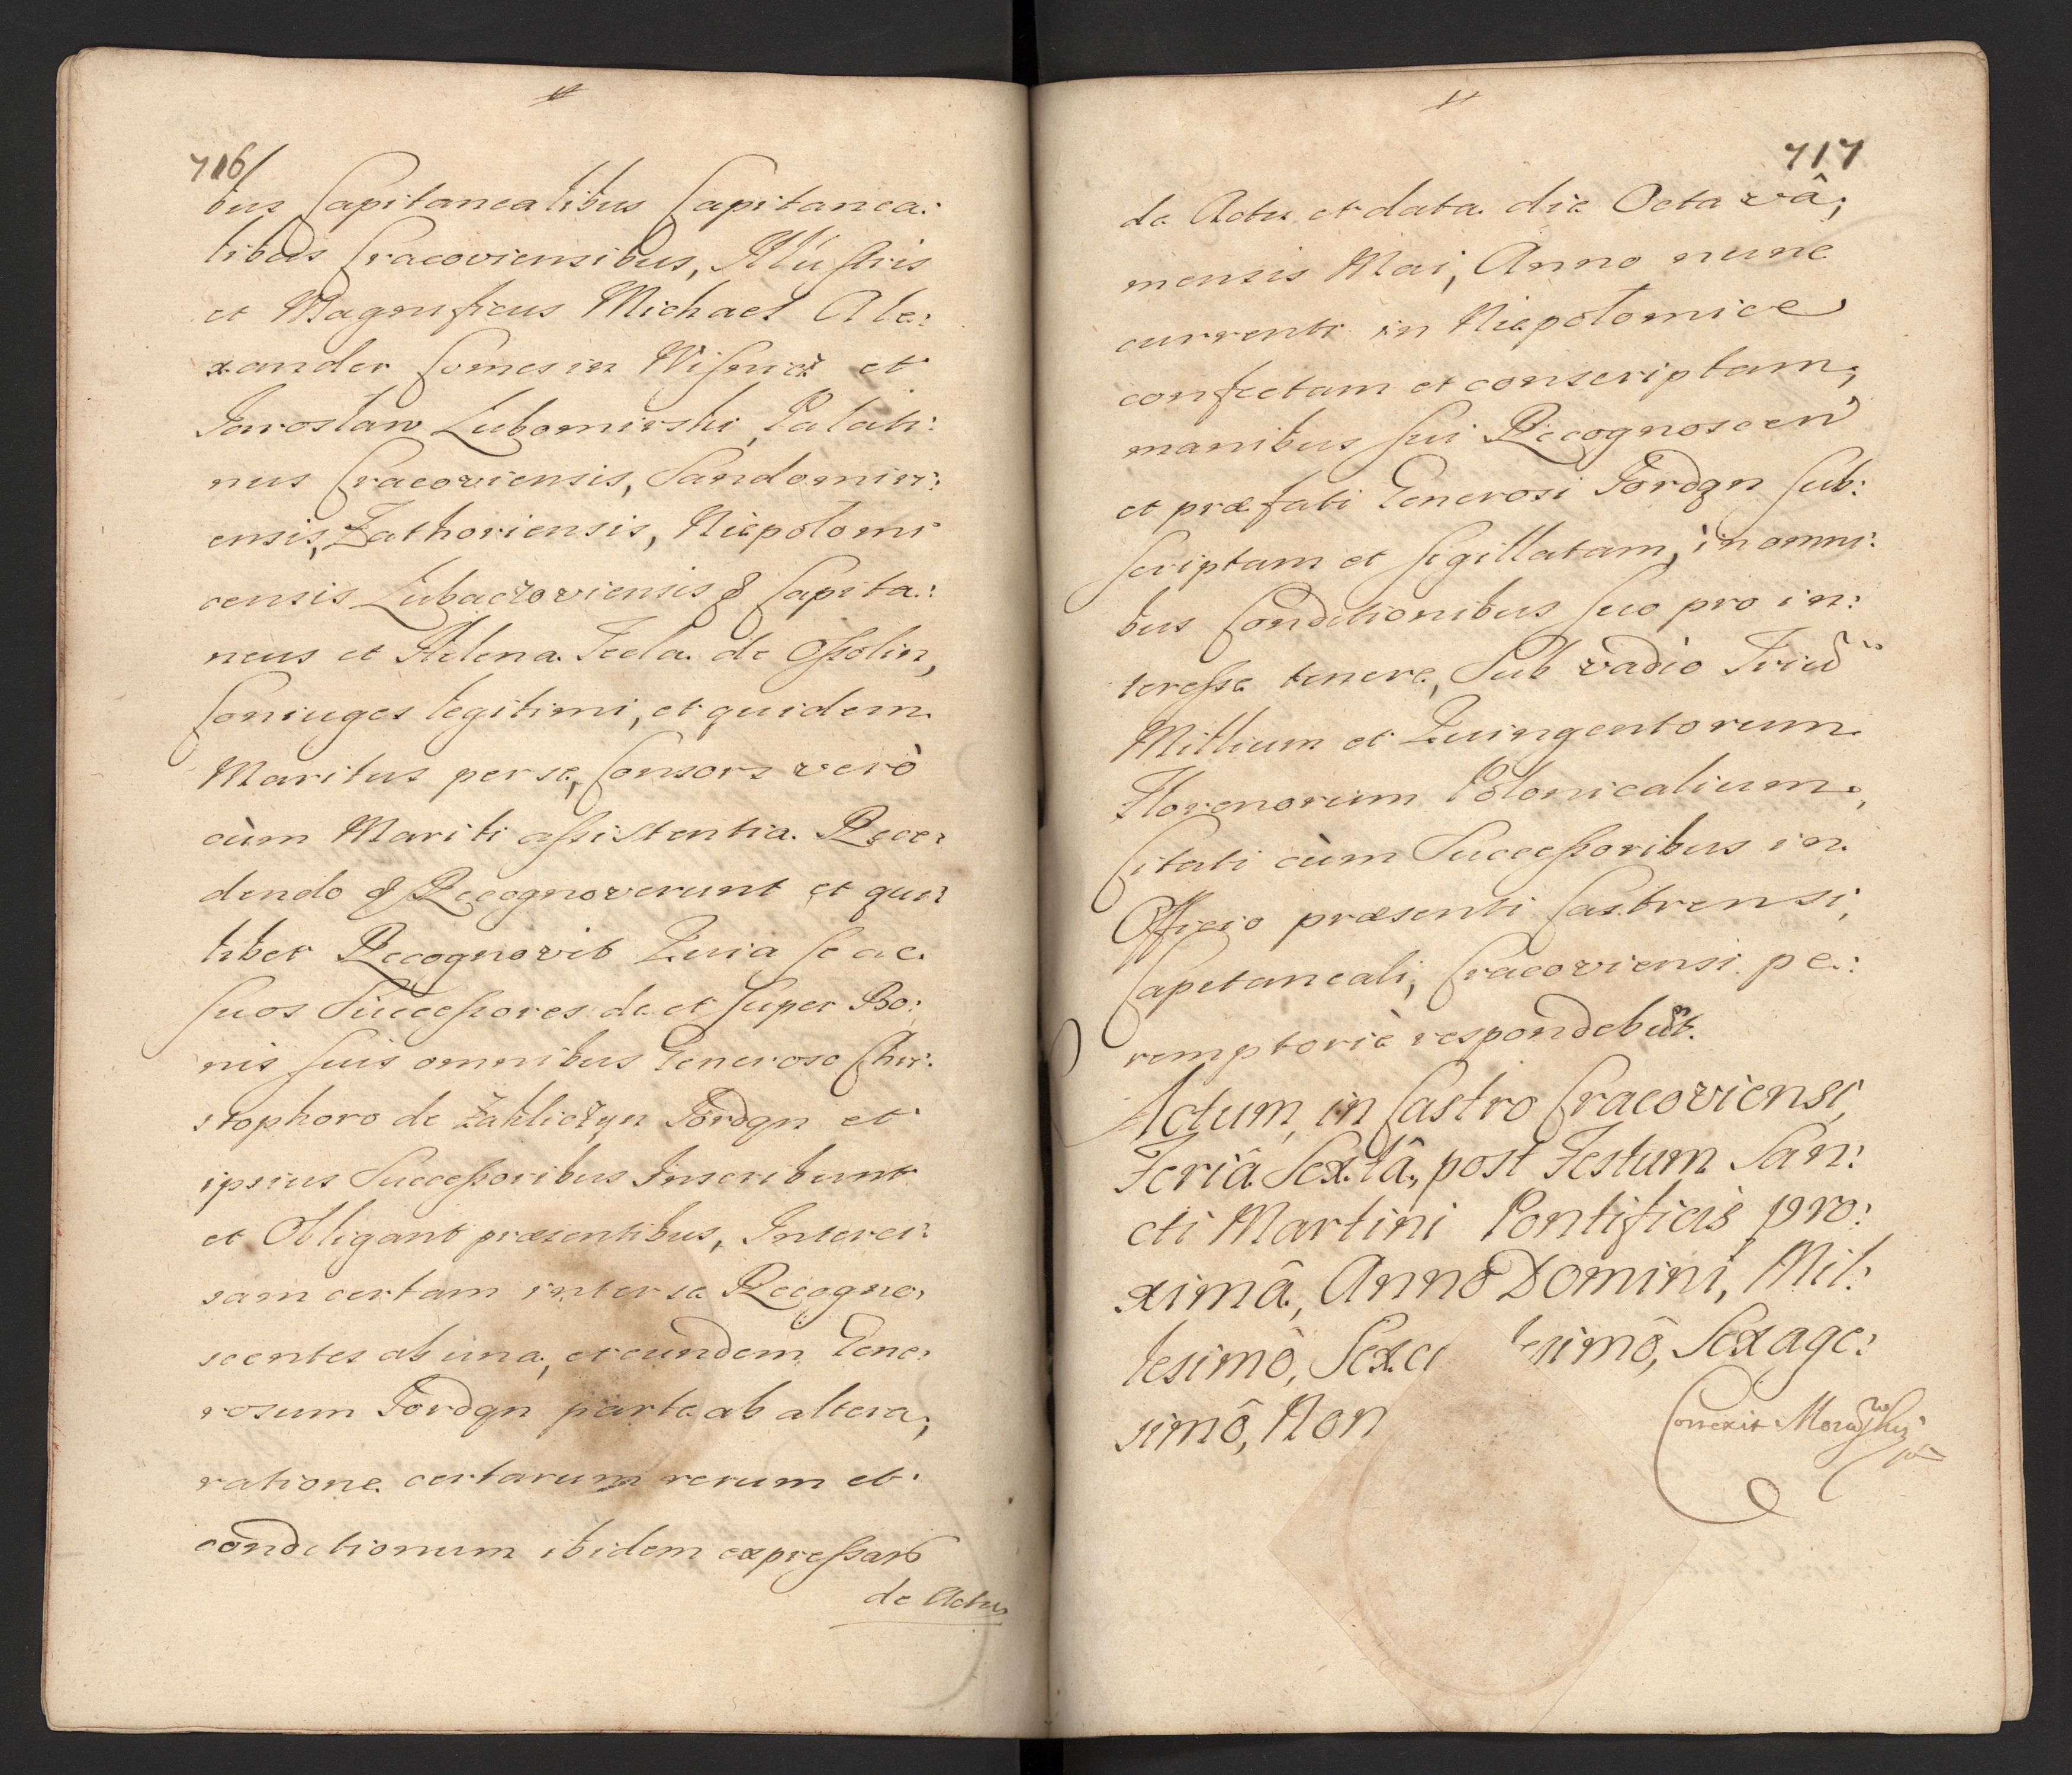 716/
bus Capitanealibus Capitanea:
libus Cracoviensibus, Illustris
et Magnificus Michael Ale:
xander Comes in Wisnicz et
Iaroslaw Lubomirski, Palati:
nus Cracoviensis, Sandomiri:
ensis, Zathoriensis, Niepolomi
censis Lubaczoviensis & Capita:
neus et Helena Tecla de Ossolin,
Coniuges legitimi, et quidem
Maritus per se, Consors verò
cùm Mariti assistentia Rece:
dendo & Recognoverunt et qui:
libet Recognovit Quia se ac
suos Successores de et super Bo:
nis suis omnibus Generoso Chri:
stophoro de Zakliczyn Iordan et
ipsius Successoribus Inscribunt
et Obligant præsentibus, Interci:
sam certam inter se Recogno,
scentes ab una, et eundem Gene:
rosum Iordan parte ab altera,
ratione certarum rerum et
conditionum ibidem expressarũ
de Actu
717
de Actu et data die Octavâ,
mensis Mai, Anno nunc
currenti in Niepolomice
confectam et conscriptam,
manibus sui Recognoscen
et præfati Generosi Iordan sub:
scriptam et sigillatam, in omni:
bus Conditionibus suo pro in:
teresse tenere, Sub vadio Triũ
Millium et Quingentorum
Florenorum Polonicalium,
Citati cùm Successoribus in
Officio præsenti Castrensi,
Capitaneali, Cracoviensi pe:
remptoriè respondebũt.
Actum, in Castro Cracoviensi,
Feriâ Sextâ, post Festum San:
cti Martini Pontificis pro:
ximâ, Anno Domini, Mil:
lesimô, Sexce tesimô, Sexage:
simô, Non
Correxit